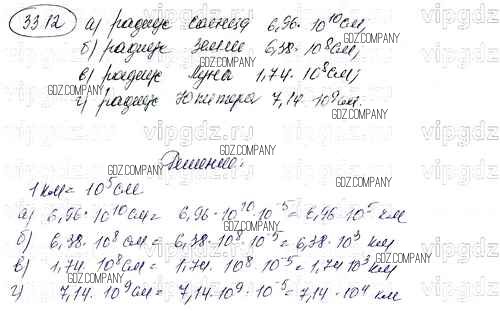 33.12 а) радиус Солнца 6,96 · 10¹⁰ см;
б) радиус Земли 6,38 · 10⁸ см;
в) радиус Луна 1,74 · 10⁸ см;
г) радиус Юпитера 7,14 · 10⁹ см.
Решение:
1 км = 10⁵ см
а) 6,96 · 10¹⁰ см = 6,96 · 10¹⁰ · 10⁻⁵ = 6,96 · 10⁵ км
б) 6,38 · 10⁸ см = 6,38 · 10⁸ · 10⁻⁵ = 6,38 · 10³ км
в) 1,74 · 10⁸ см = 1,74 · 10⁸ · 10⁻⁵ = 1,74 · 10³ км
г) 7,14 · 10⁹ см = 7,14 · 10⁹ · 10⁻⁵ = 7,14 · 10⁴ км
vipgdz.ru
GDZ.COMPANY